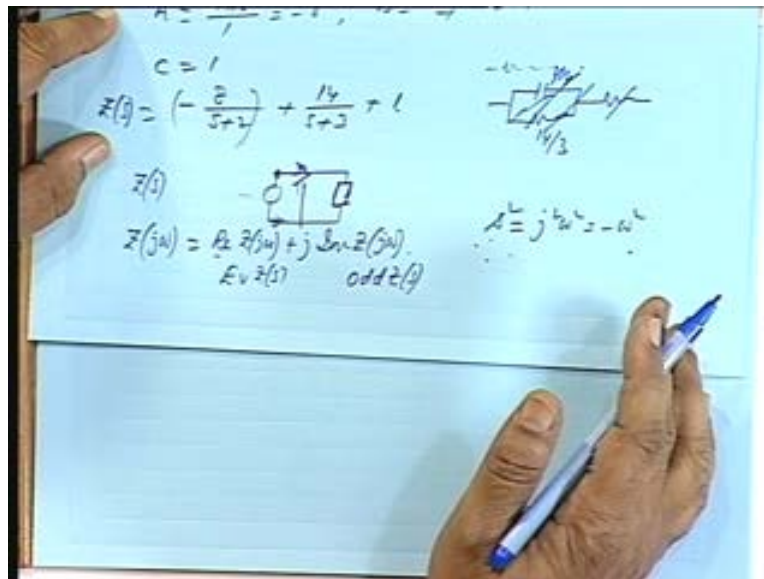 C = 1
Z(s) = (- 8/(s+2)) + 14/(s+3) + 1
14/3
Z(s)
Z(jω) = Re Z(jω) + j Im Z(jω).
Ev Z(s) odd Z(s)
s² = j²ω² = -ω²